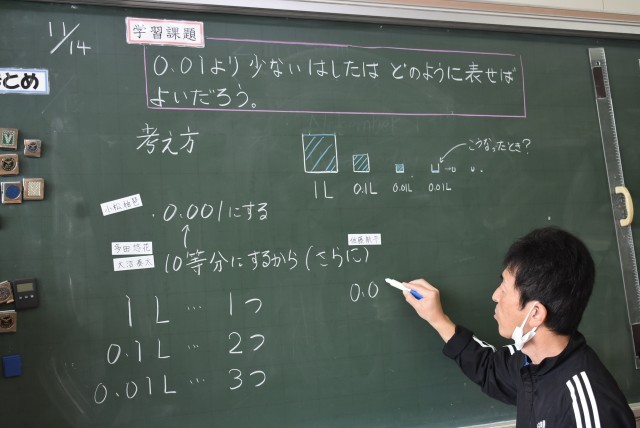 11/14
学習課題
まとめ
0.01より少ないはしたは どのように表せば
よいだろう。
考え方
こうなったとき?
1L 0.1L 0.01L 0.01L
0.001にする
10等分にするから(さらに)
0.0
1L … 1つ
0.1L … 2つ
0.01L … 3つ